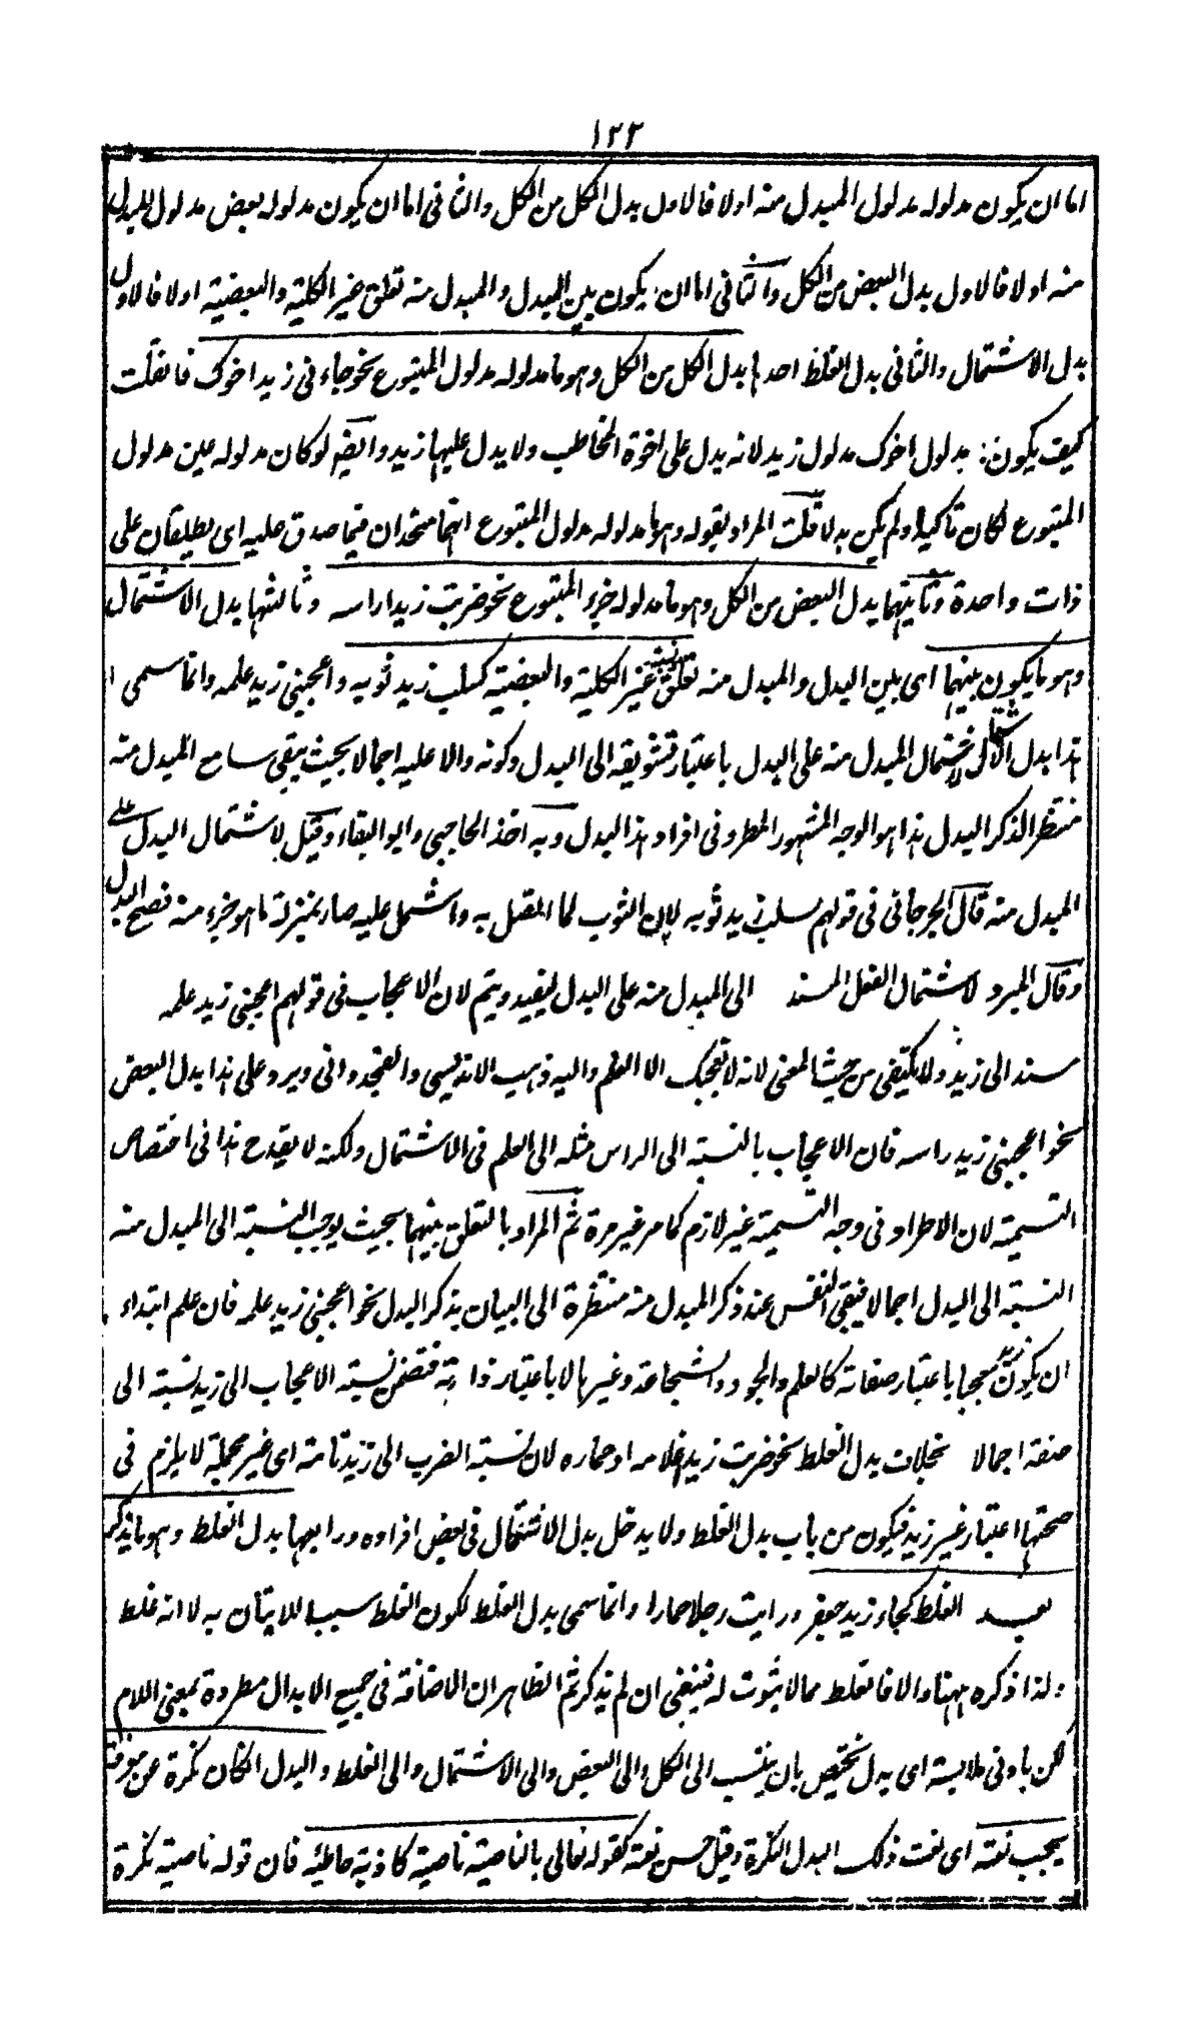 ١٢٢
اما ان يكون مدلوله مدلول المبدل منه اولا فالاول بدل الكل من الكل والثانى اما ان يكون مدلوله بعض مدلول المبدل
منه اولا فالاول بدل البعض من الكل والثانى اما ان يكون بين المبدل و المبدل منه تعلق بغير الكلية والبعضية اولا فالاول
بدل الاشتمال والثانى بدل الغلط احدها بدل الكل من الكل وهو ما مدلوله مدلول المتبوع نحو جاءنى زيد اخوك فان قلت
كيف يكون مدلول اخوك مدلول زيد لانه يدل على اخوة المخاطب ولا يدل عليها زيد وايضا لو كان مدلوله عين مدلول
المتبوع لكان تاكيدا ولم يكن بدلا قلت المراد بقوله وهو ما مدلوله مدلول المتبوع انهما متحدان فيما صدق عليه اى يطلقان على
ذات واحدة وثانيهما بدل البعض من الكل وهو ما مدلوله جزء المتبوع نحو ضربت زيدا راسه وثالثها بدل الاشتمال
وهو ما يكون بينهما اى بين البدل والمبدل منه تعلق بغير الكلية والبعضية كسلب زيد ثوبه واعجبنى زيد علمه وانما سمى
هذا بدل الاشتمال لاشتمال المبدل منه على البدل باعتبار تشويقه الى البدل وكونه دالا عليه اجمالا بحيث يبقى سامع المبدل منه
منتظر الذكر البدل هذا هو الوجه المشهور المطرد فى افراد هذا البدل وبه اخذ الحاجبى وابو البقاء وقيل لاشتمال البدل على
المبدل منه قال الجرجانى فى قولهم سلب زيد ثوبه لان الثوب لما اتصل به واشتمل عليه صار بمنزلة ما هو جزء منه فصح البدل
وقال المبرد لاشتمال الفعل المسند الى المبدل منه على البدل ليفيد ويتم لان الاعجاب فى قولهم اعجبنى زيد علمه
مسند الى زيد ولا يكتفى من حيث المعنى لانه لا تعجبك الا العلم واليه ذهب الاندلسى والفجدوانى ويرد على هذا بدل البعض
نحو اعجبنى زيد راسه فان الاعجاب بالنسبة الى الراس مثله الى العلم فى الاشتمال ولكنه لا يقدح هذا فى اختصاص
التسمية لان الاطراد فى وجه التسمية غير لازم كما مر غير مرة ثم المراد بالتعلق بينهما بحيث يوجب النسبة الى المبدل منه
النسبة الى البدل اجمالا فيبقى النفس عند ذكر المبدل منه منتظرة الى البيان بذكر البدل نحو اعجبنى زيد علمه فان علم ابتداء
ان يكون زيد معجبا باعتبار صفاته كالعلم والجود والشجاعة وغيرها لا باعتبار ذاته فتضمن نسبة الاعجاب الى زيد نسبته الى
صفة اجمالا بخلاف بدل الغلط نحو ضربت زيدا غلامه او حماره لان نسبة الضرب الى زيد تامة اى غير مجملة لا يلزم فى
صحتها اعتبار غير زيد فيكون من باب بدل الغلط ولا يدخل بدل الاشتمال فى بعض افراده ورابعها بدل الغلط وهو ما يذكر
بعد الغلط كجاء زيد جعفر ورايت رجلا حمارا وانما سمى بدل الغلط لكون الغلط سببا للاتيان به لا انه غلط
ولذا ذكره ههنا والا فالغلط مما لا ثبوت له فينبغى ان لم يذكر ثم الظاهر ان الاضافة فى جميع الابدال مطردة بمعنى اللام
لكن بادنى ملابسة اى بدل يختص بان ينتسب الى الكل والى البعض والى الاشتمال والى الغلط والبدل ان كان نكرة عن معرفة
يجب نعته اى نعت ذلك البدل النكرة وقيل حسن نعته كقوله تعالى بالناصية ناصية كاذبة خاطئة فان قوله ناصية نكرة